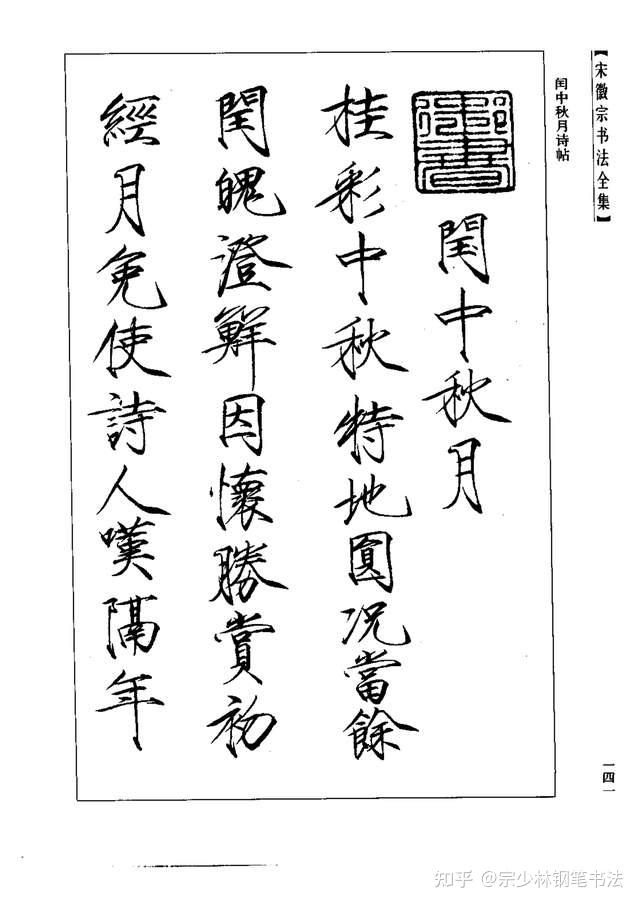 【宋徽宗书法全集】
闰中秋月诗帖
御書
閏中秋月
桂彩中秋特地圓況當餘
閏魄澄鮮因懷勝賞初
經月免使詩人嘆隔年
一四一
知乎 @宗少林钢笔书法